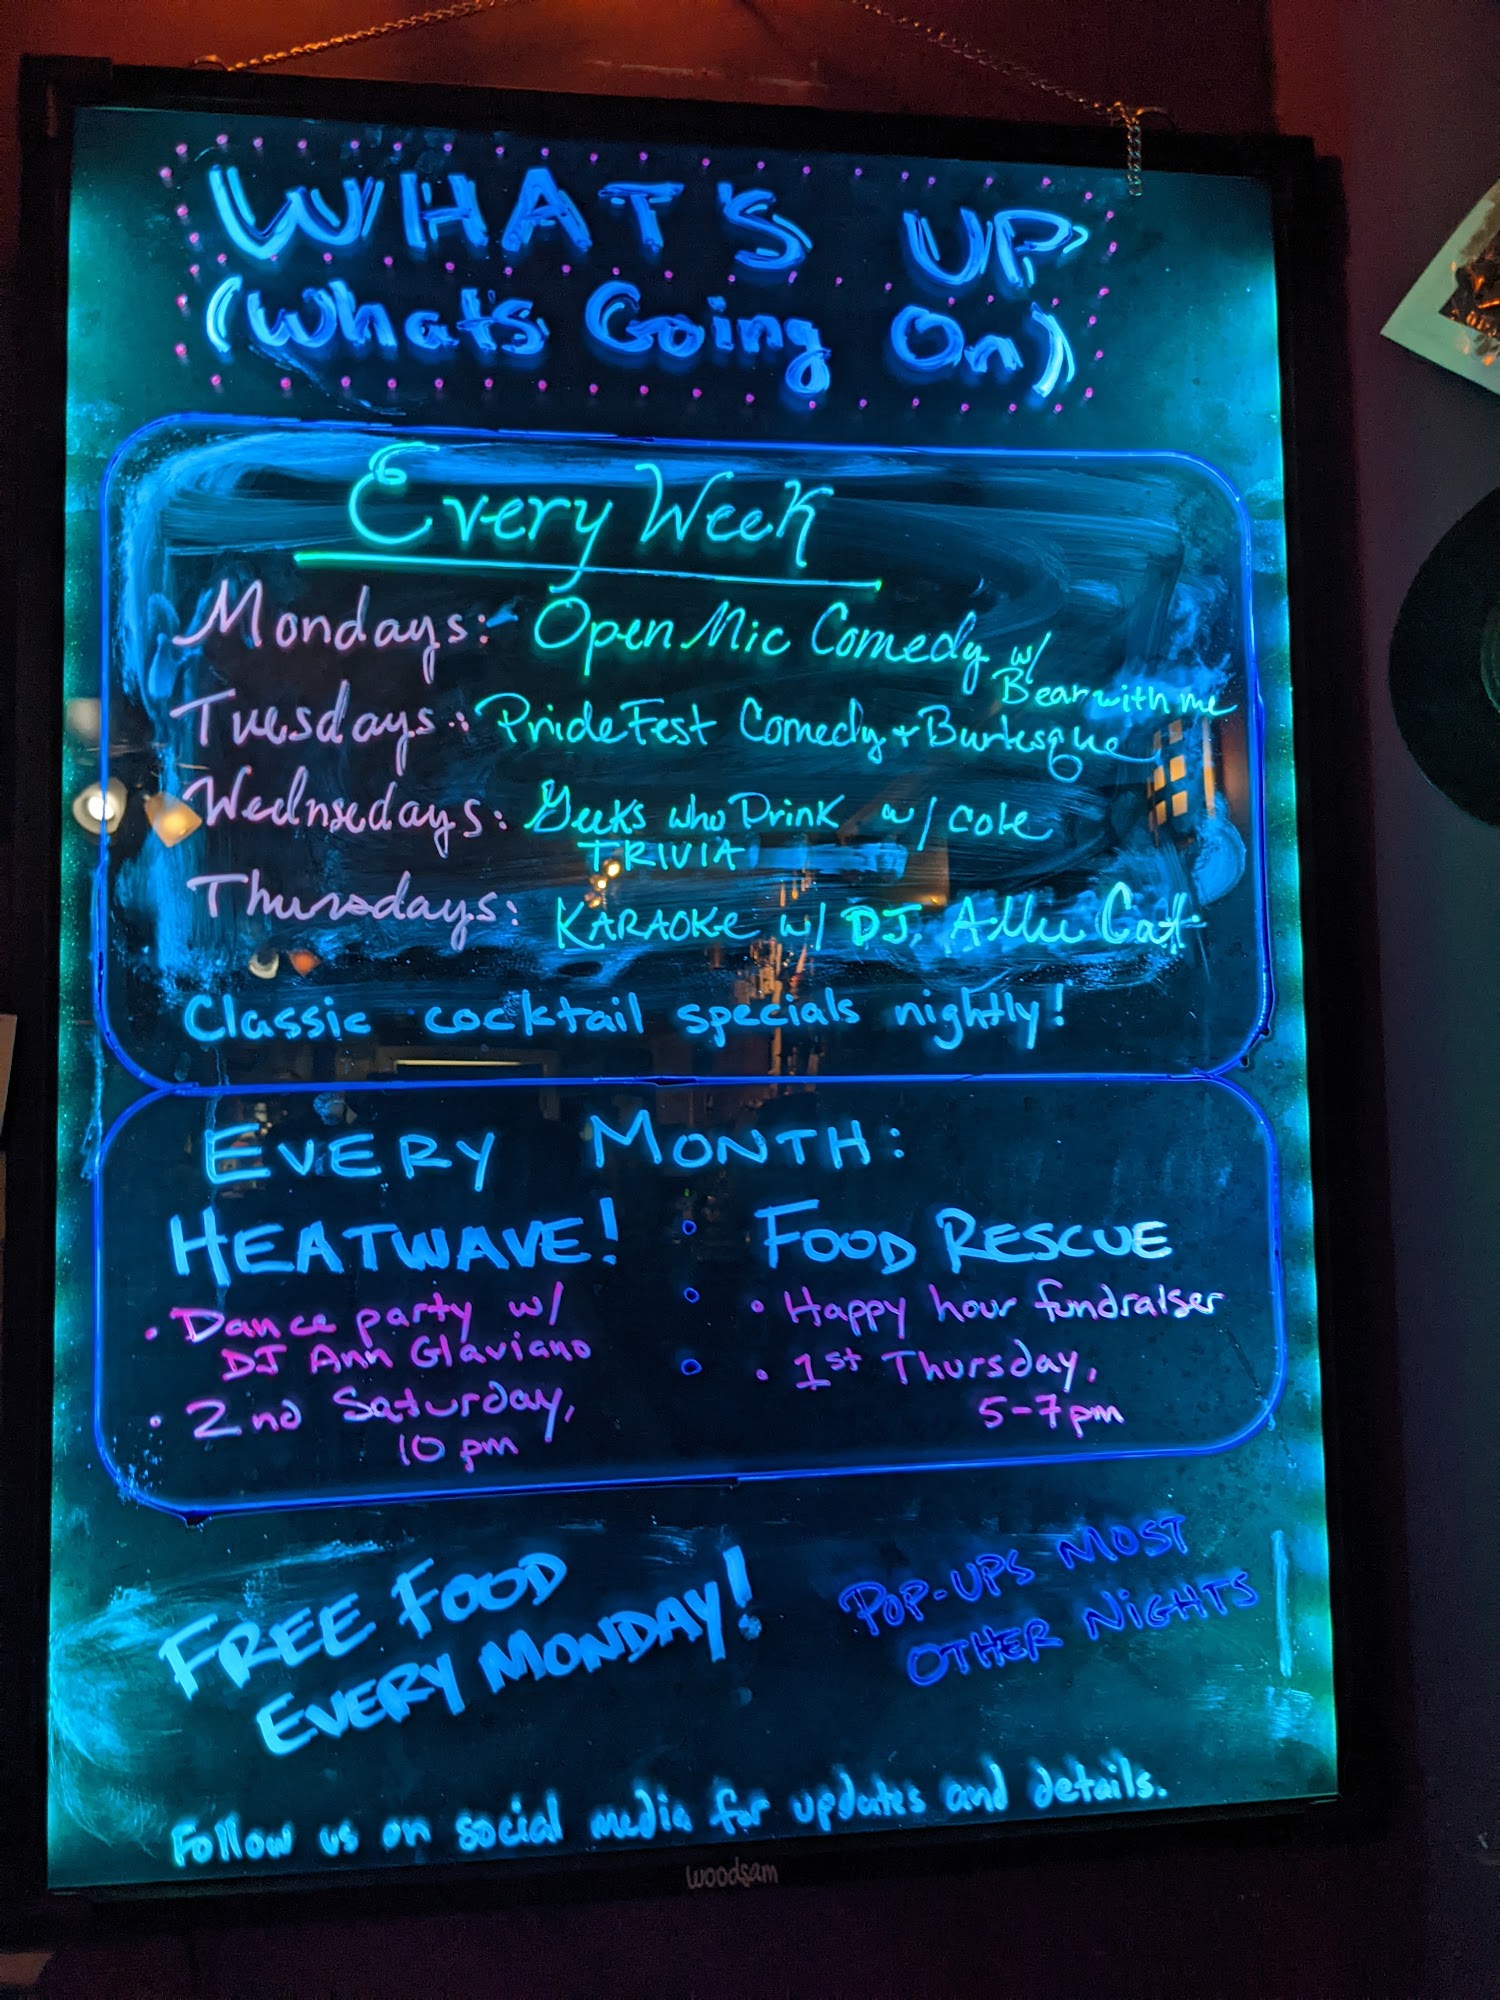 WHAT'S UP
(What's Going On)
Every Week
Mondays: Open Mic Comedy w/
Bear with me
Tuesdays: PrideFest Comedy + Burlesque
Wednesdays: Geeks who Drink w/ Cole
TRIVIA
Thursdays: KARAOKE w/ DJ. Allie Cat
Classic cocktail specials nightly!
EVERY MONTH:
HEATWAVE!
• Dance party w/
DJ Ann Glaviano
• 2nd Saturday,
10 pm
FOOD RESCUE
• Happy hour fundraiser
• 1st Thursday,
5-7pm
FREE FOOD
EVERY MONDAY!
POP-UPS MOST
OTHER NIGHTS
Follow us on social media for updates and details.
woodsam